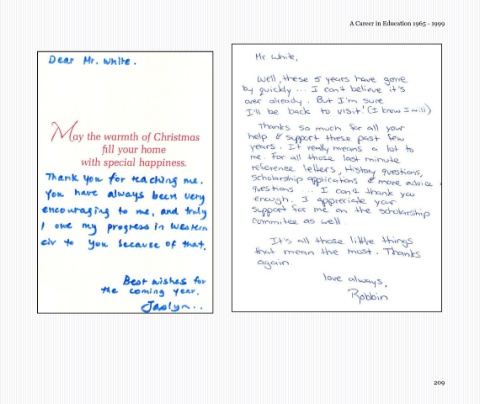 A Career in Education 1965 - 1999
Dear Mr. White.
May the warmth of Christmas
fill your home
with special happiness.
Thank you for teaching me.
You have always been very
encouraging to me, and truly
I owe my progress in Western
civ to you because of that.
Best wishes for
the coming year.
Jaslyn..
Mr White,
Well, these 5 years have gone
by quickly ... I can't believe it's
over already. But I'm sure
I'll be back to visit! (I know I will)
Thanks so much for all your
help & support these past few
years. It really means a lot to
me. For all those last minute
reference letters, History questions,
Scholarship applications & more advice
questions ... I can't thank you
enough. I appreciate your
support for me on the scholarship
commitee as well.
It's all those little things
that mean the most. Thanks
again.
love always,
Robbin
209